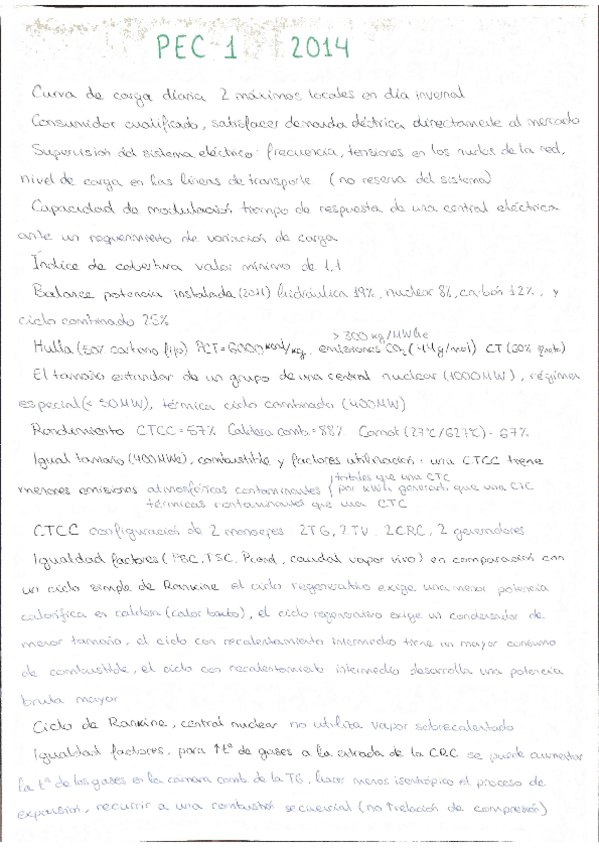 PEC 1 2014
Curva de carga diaria 2 máximos locales en día invernal
Consumidor cualificado, satisfacer demanda eléctrica directamente al mercado
Supervisión del sistema eléctrico: frecuencia, tensiones en los nudos de la red,
nivel de carga en las líneas de transporte (no reserva del sistema)
Capacidad de modulación tiempo de respuesta de una central eléctrica
ante un requerimiento de variación de carga
Índice de cobertura valor mínimo de 1,1
Balance potencia instalada (2011) hidráulica 19%, nuclear 8%, carbón 12%, y
ciclo combinado 25%
> 300 kg/MWhe
Hulla (50% carbono fijo) PCI = 6000 kcal/kg, emisiones CO2 (44g/mol) CT (60%
El tamaño estandar de un grupo de una central nuclear (1000MW), régimen
especial (< 50MW), térmica ciclo combinado (400MW)
Rendimiento CTCC = 57% Caldera comb = 88% Carnot (27ºC/627ºC) = 67%
Igual tamaño (400MWe), combustible y factores utilización: una CTCC tiene
menores emisiones atmosféricas contaminantes totales que una CTC
por kWh generado que una CTC
térmicas contaminantes que una CTC
CTCC configuración de 2 monoejes 2TG, 2TV, 2CRC, 2 generadores
Igualdad factores (PBC, TSC, Pcond, caudal vapor vivo) en comparación con
un ciclo simple de Rankine el ciclo regenerativo exige una menor potencia
calorífica en caldera (calor tanto), el ciclo regenerativo exige un condensador de
menor tamaño, el ciclo con recalentamiento intermedio tiene un mayor consumo
de combustible, el ciclo con recalentamiento intermedio desarrolla una potencia
bruta mayor
Ciclo de Rankine, central nuclear no utiliza vapor sobrecalentado
Igualdad factores, para ↑tª de gases a la entrada de la CRC se puede aumentar
la tª de los gases en la cámara comb. de la TG, hacer menos isentrópico el proceso de
expansión, recurrir a una combustión secuencial (no ↑relación de compresión)